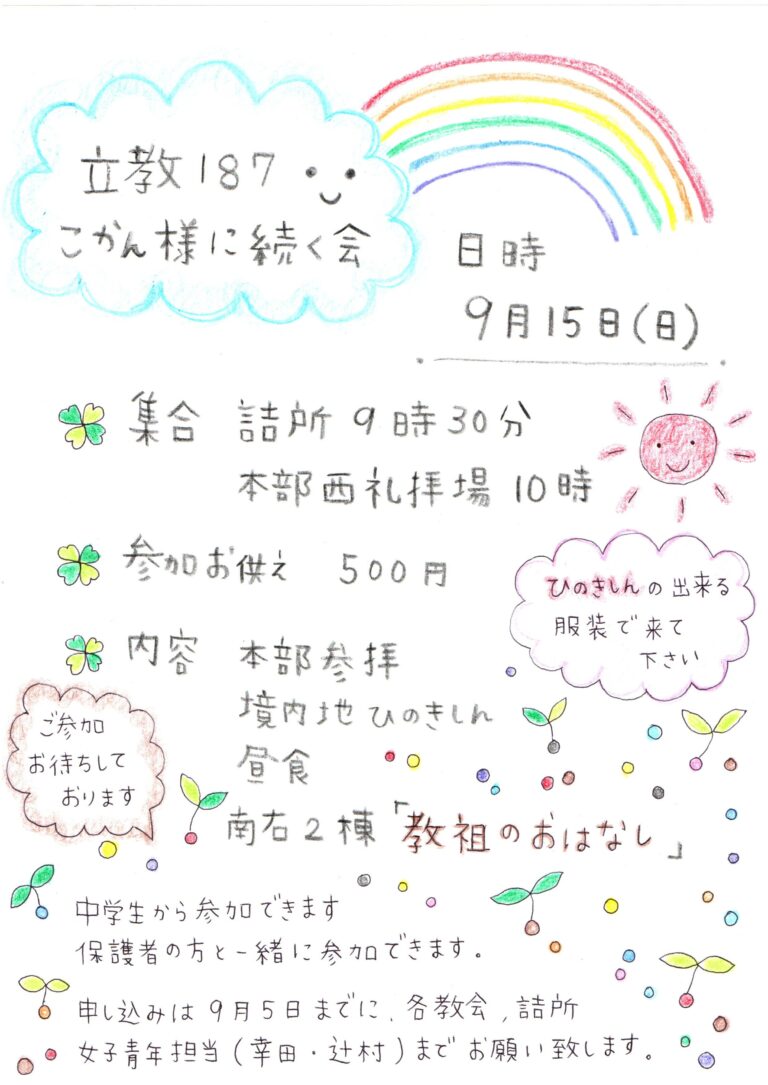 立教187
こかん様に続く会
日時
9月15日(日)
集合 詰所9時30分
本部西礼拝場10時
参加お供え 500円
ひのきしんの出来る
服装で来て
下さい
内容 本部参拝
境内地ひのきしん
昼食
南右2棟「教祖のおはなし」
ご参加
お待ちして
おります
中学生から参加できます
保護者の方と一緒に参加できます。
申し込みは9月5日までに、各教会,詰所
女子青年担当(幸田・辻村)までお願い致します。